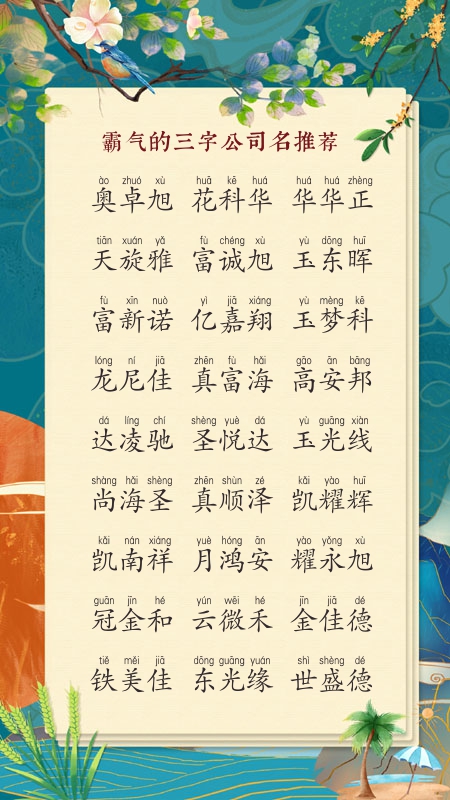 霸气的三字公司名推荐
ào zhuó xù huā kē huá huá huá zhèng
奥卓旭 花科华 华华正
tiān xuán yǎ fù chéng xù yù dōng huī
天旋雅 富诚旭 玉东晖
fù xīn nuò yì jiā xiáng yù mèng kē
富新诺 亿嘉翔 玉梦科
lóng ní jiā zhēn fù hǎi gāo ān bāng
龙尼佳 真富海 高安邦
dá líng chí shèng yuè dá yù guāng xiàn
达凌驰 圣悦达 玉光线
shàng hǎi shèng zhēn shùn zé kǎi yào huī
尚海圣 真顺泽 凯耀辉
kǎi nán xiáng yuè hóng ān yào yǒng xù
凯南祥 月鸿安 耀永旭
guān jīn hé yún wēi hé jīn jiā dé
冠金和 云微禾 金佳德
tiě měi jiā dōng guāng yuán shì shèng dé
铁美佳 东光缘 世盛德